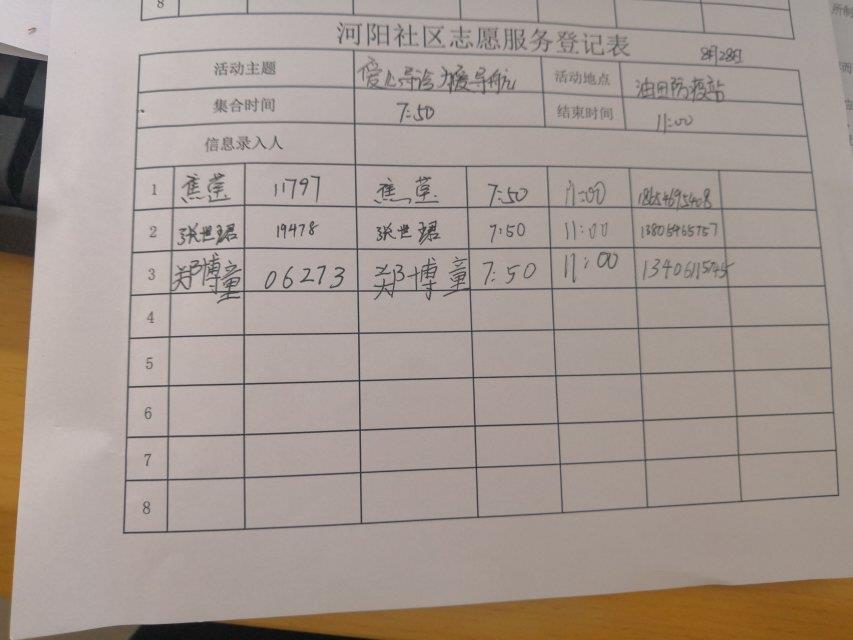 8
河阳社区志愿服务登记表 8月28日
活动主题 爱心导诊 为爱导航 活动地点 油田防疫站
集合时间 7:50 结束时间 11:00
信息录入人
1 焦莹 11797 焦莹 7:50 11:00 18654695408
2 张世珺 19478 张世珺 7:50 11:00 13805465757
3 郑博童 06273 郑博童 7:50 11:00
4
5
6
7
8
所制